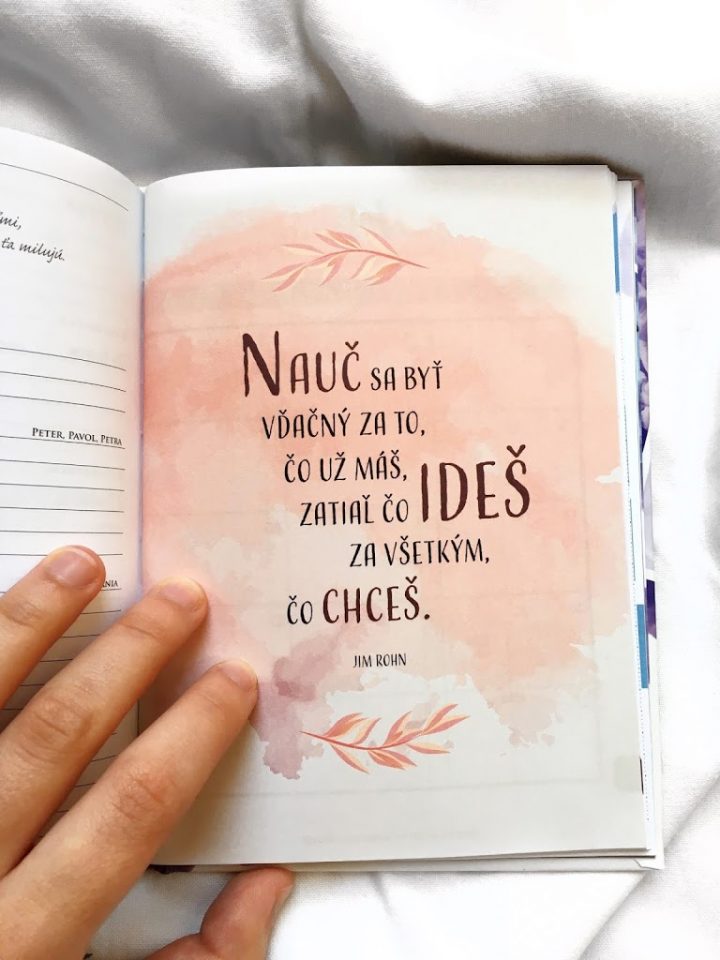 ťa milujú.
PETER, PAVOL, PETRA
NAUČ SA BYŤ
VĎAČNÝ ZA TO,
ČO UŽ MÁŠ,
ZATIAĽ ČO IDEŠ
ZA VŠETKÝM,
ČO CHCEŠ.
JIM ROHN